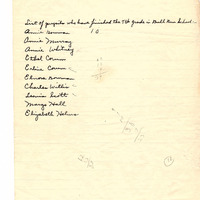 List of pupils who have finished the 7th grade in Bull Run School -
Annie Bowman 10
Annie Murray
Annie Whitney
Ethel Corum
Erline Corum
Elnora Bowman
Charles Willis
Louise Scott
Margo Hall
Elizabeth Helms